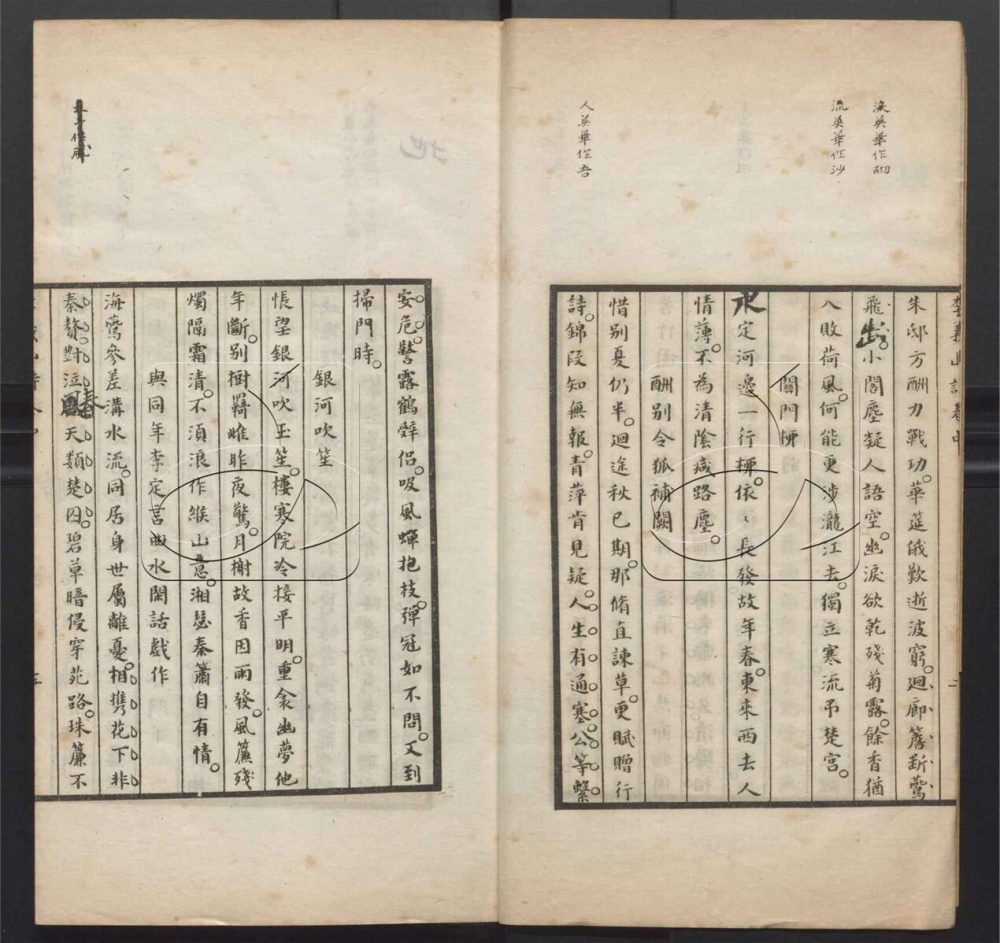 淚英華作砌
流英華作沙
人英華作吾
李義山詩卷中
朱邸方酬力戰功華筵俄歎逝波窮迴廊簷斷鷰
飛出小閣塵凝人語空幽淚欲乾殘菊露餘香猶
入敗荷風何能更涉瀧江去獨立寒流弔楚宮
關門柳
永定河邊一行柳依〻長發故年春東來西去人
情薄不為清陰減路塵
酬別令狐補闕
惜別夏仍半迴途秋已期那脩直諫草更賦贈行
詩錦段知無報青萍肯見疑人生有通塞公等繫
安危警露鶴辭侶吸風蟬抱枝彈冠如不問又到
掃門時
銀河吹笙
悵望銀河吹玉笙樓寒院冷接平明重衾幽夢他
年斷別樹羈雌昨夜驚月榭故香因雨發風簾殘
燭隔霜清不須浪作緱山意湘瑟秦簫自有情
與同年李定言曲水閒話戲作
海鷰參差溝水流同居身世屬離憂相攜花下非
秦贅對泣春天類楚囚碧草暗侵穿苑路珠簾不